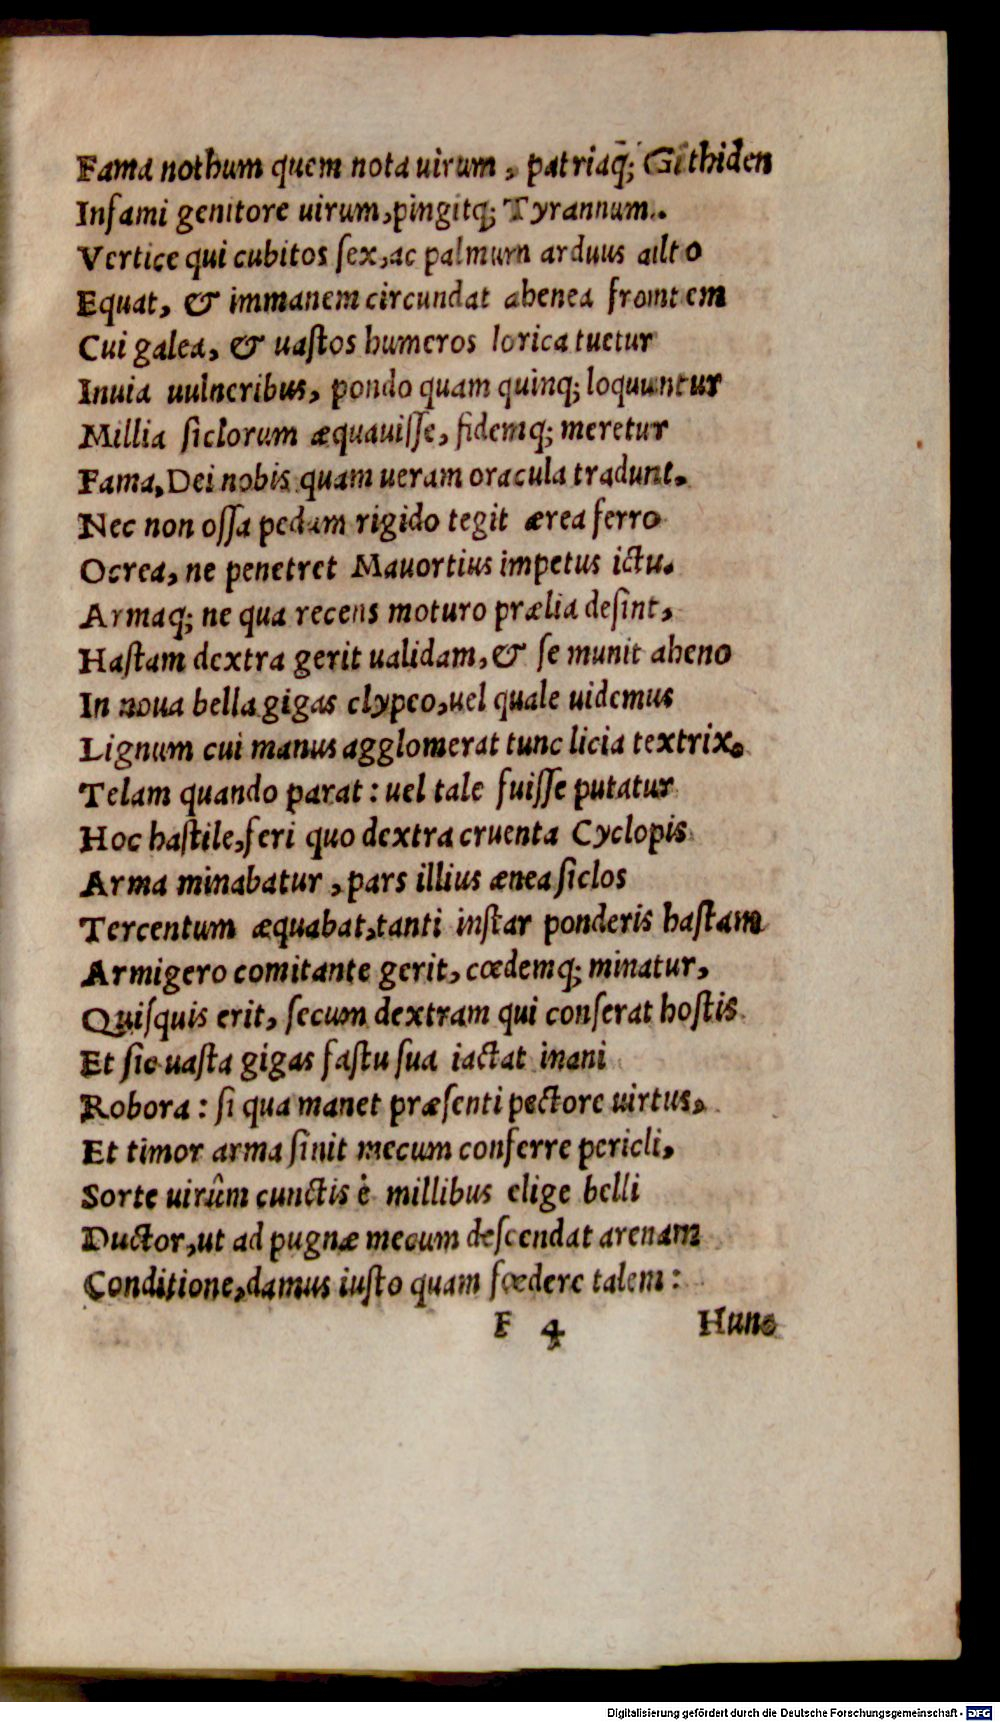 Fama nothum quem nota uirum, patriaq̃; Githiden
Infami genitore uirum, pingitq; Tyrannum.
Vertice qui cubitos ſex, ac palmum arduus alto
Equat, & immanem circundat ahenea frontem
Cui galea, & uaſtos humeros lorica tuetur
Inuia uulneribus, pondo quam quinq; loquuntur
Millia ſiclorum æquauiſſe, fidemq; meretur
Fama, Dei nobis quam ueram oracula tradunt.
Nec non oſſa pedum rigido tegit ærea ferro
Ocrea, ne penetret Mauortius impetus ictu.
Armaq; ne qua recens moturo prælia deſint,
Haſtam dextra gerit ualidam, & ſe munit aheno
In noua bella gigas clypeo, uel quale uidemus
Lignum cui manus agglomerat tunc licia textrix.
Telam quando parat: uel tale fuiſſe putatur
Hoc haſtile, feri quo dextra cruenta Cyclopis
Arma minabatur, pars illius ænea ſiclos
Tercentum æquabat, tanti inſtar ponderis haſtam
Armigero comitante gerit, cœdemq; minatur,
Quiſquis erit, ſecum dextram qui conſerat hoſtis
Et ſic uaſta gigas faſtu ſua iactat inani
Robora: ſi qua manet præſenti pectore uirtus,
Et timor arma ſinit mecum conferre pericli,
Sorte uirûm cunctis è millibus elige belli
Ductor, ut ad pugnæ mecum deſcendat arenam
Conditione, damus iuſto quam fœdere talem:
F 4 Hunc
Digitalisierung gefördert durch die Deutsche Forschungsgemeinschaft - DFG